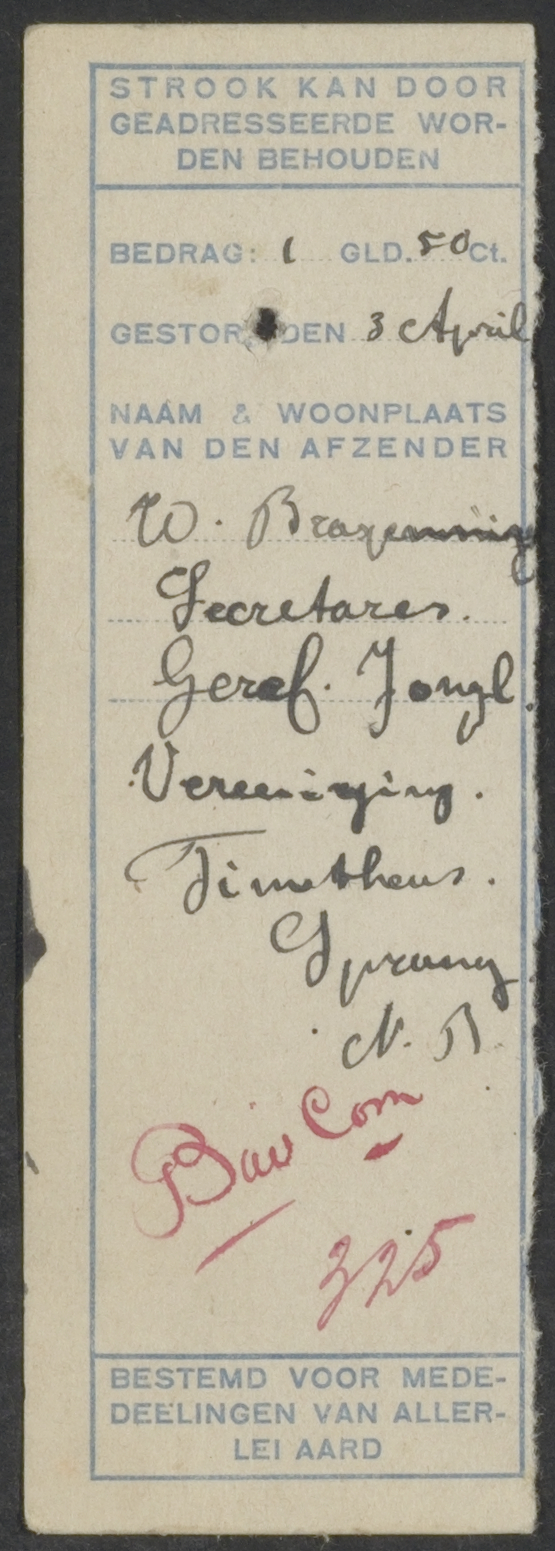 STROOK KAN DOOR
GEADRESSEERDE WOR-
DEN BEHOUDEN
BEDRAG: 1 GLD. 50 Ct.
GESTOR DEN 3 April
NAAM & WOONPLAATS
VAN DEN AFZENDER
W.
Secretares.
Geref. Jongl.
Vereeniging.
Timotheus.
Sprang
N. B.
Com
325
BESTEMD VOOR MEDE-
DEELINGEN VAN ALLER-
LEI AARD